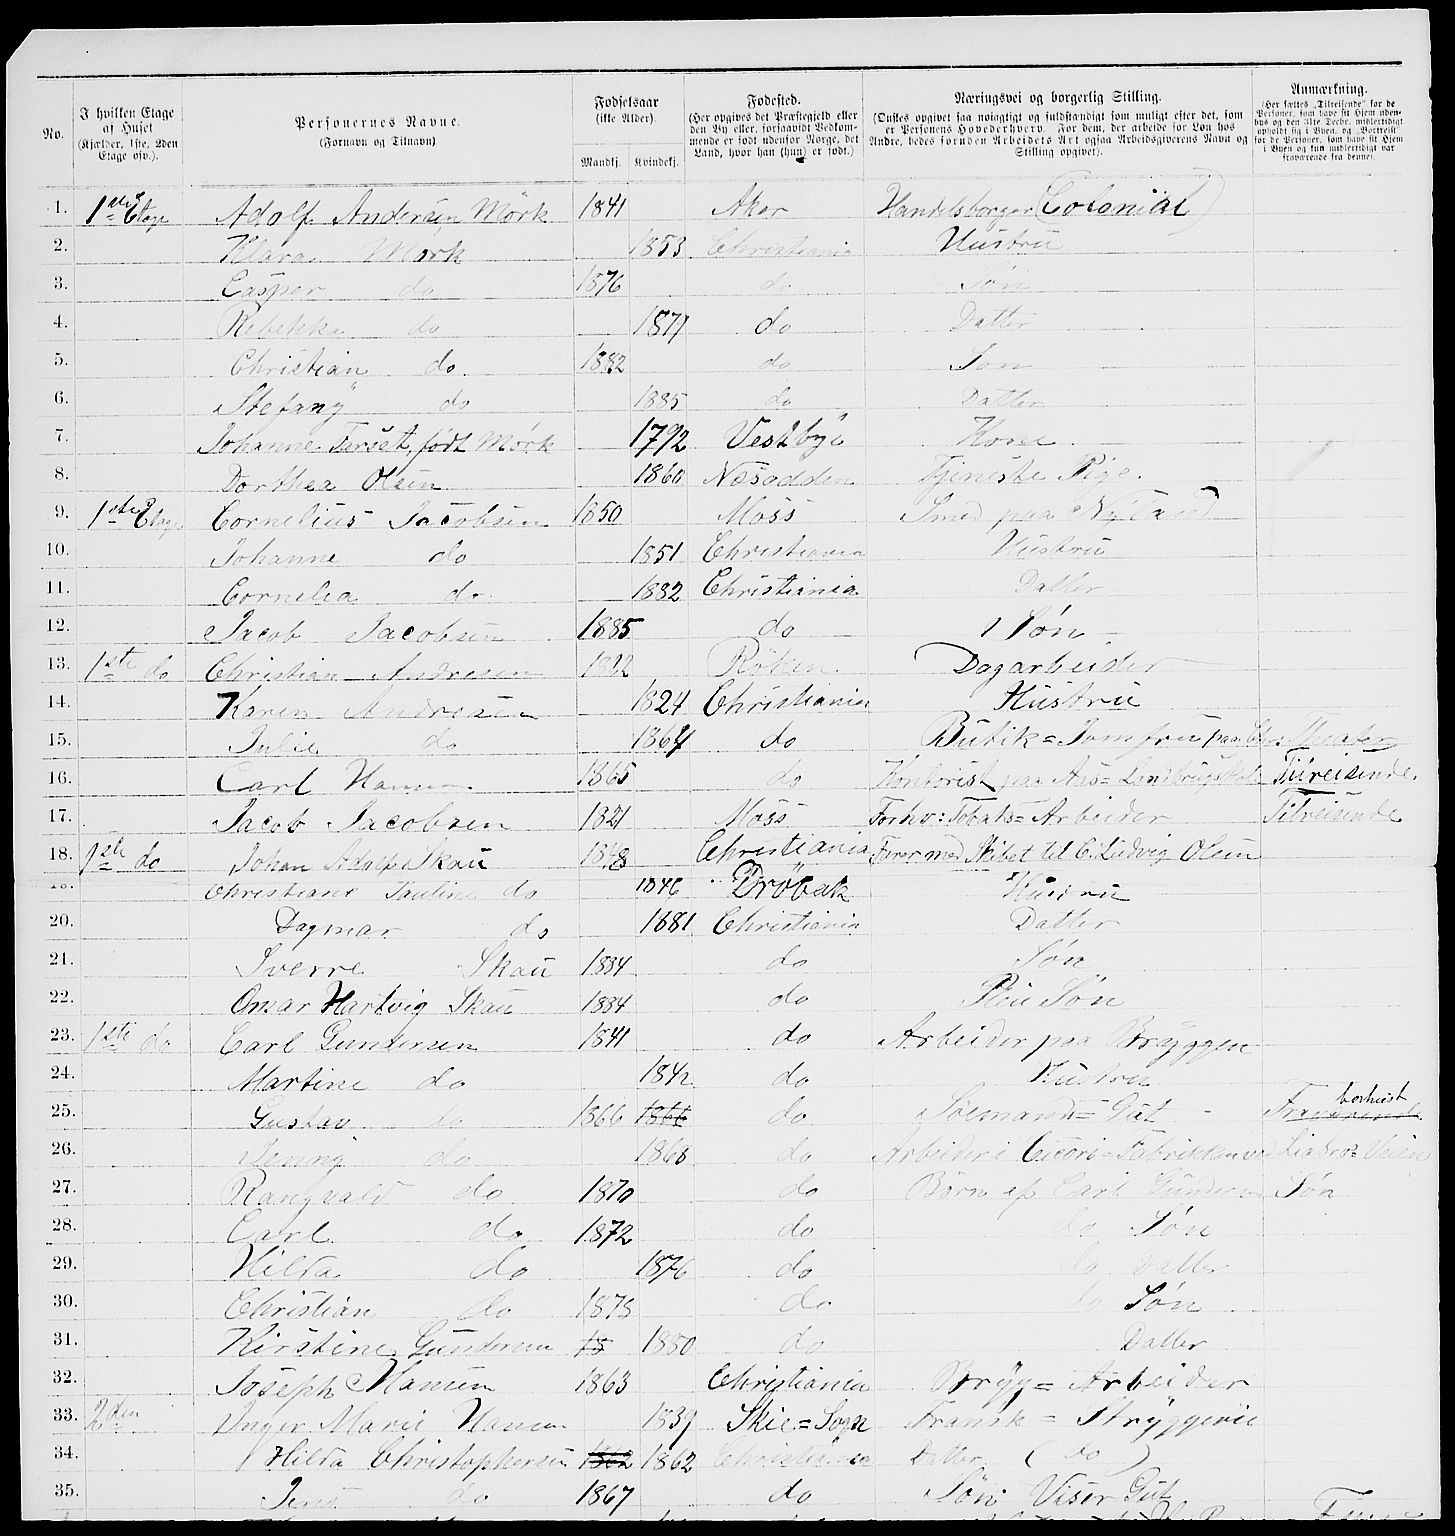 No. I hvilken Etage af Huset (Kjælder, 1ste, 2den Etage osv.). Personernes Navne. (Fornavn og Tilnavn) Fødselsaar (ikke Alder). Mandkj. Kvindekj. Fødested. (Her opgives det Præstegjeld eller den By eller, forsaavidt Vedkommende er født udenfor Norge, det Land, hvor han (hun) er født.) Næringsvei og borgerlig Stilling. (Ønskes opgivet saa nøiagtigt og fuldstændigt som muligt efter det, som er Personens Hovederhverv. For dem, der arbeide for Løn hos Andre, bedes foruden Arbeidets Art ogsaa Arbeidsgiverens Navn og Stilling opgivet). Anmærkning. (Her sættes „Tilreisende" for de Personer, som have sit Hjem udenbys og den 31te Decbr. midlertidigt opholdt sig i Byen, og „Bortreist" for de Personer, som have sit Hjem i Byen og kun midlertidigt var fraværende fra denne).
1. 1ste Etage Adolf Andersen Mörk 1841 Aker Handelsborger (Colonial)
2. Klara Mörk 1853 Christiania Hustru
3. Casper do 1876 do Søn
4. Rebekka do 1879 do Datter
5. Christian do 1882 do Søn
6. Stefany do 1885 do Datter
7. Johanne Tarset, født Mörk 1792 Vestbye Kone
8. Dorthea Olsen 1860 Næsodden Tjeneste Pige.
9. 1ste Etage Cornelius Jacobsen 1850 Moss Smed paa Nyland
10. Johanne do 1851 Christiania Hustru
11. Cornelia do 1882 Christiania Datter
12. Jacob Jacobsen 1885 do 1 Søn
13. 1ste do Christian Andresen 1822 Röken Dagarbeider
14. Karen Andresen 1824 Christiania Hustru
15. Julie do 1864 do Butik=Jomfru paa Chr: Theater
16. Carl Hansen 1865 do Kontorist paa Aas=Landbrugskole Tilreisende.
17. Jacob Jacobsen 1821 Moss Forhv: Tobaks=Arbeider Tilreisende
18. 1ste do Johan Adolf Skau 1848 Christiania Farer med Skibet til C. Ludvig Olsen
19. Christiane Pauline do 1846 Dröbak Hustru
20. Dagmar do 1881 Christiania Datter
21. Sverre Skau 1884 do Søn
22. Omar Hartvig Skau 1884 do Søn
23. 1ste do Carl Gundersen 1841 do Arbeider paa Bryggen
24. Martine do 1842 do Hustru
25. Gustav do 1866 1866 do Sømands=Gut bortreist Fraværende
26. Jenny do 1868 do Arbeider i Cicori=Fabrikken ved Liabro=Veien
27. Rangvald do 1870 do Børn af Carl Gundersen Søn
28. Carl do 1872 do do Søn
29. Hilda do 1876 do do Datter
30. Christian do 1875 do do Søn
31. Kirstine Gundersen 18 1880 do Datter
32. Joseph Hansen 1863 Christiania Bryg=Arbeider
33. 2den Inger Marie Hansen 1839 Skie=Sogn Fransk=Stryggerie
34. Hilda Christophersen 1862 1862 Christiania Datter (do)
35. Jens do 1867 do Søn Viser Gut